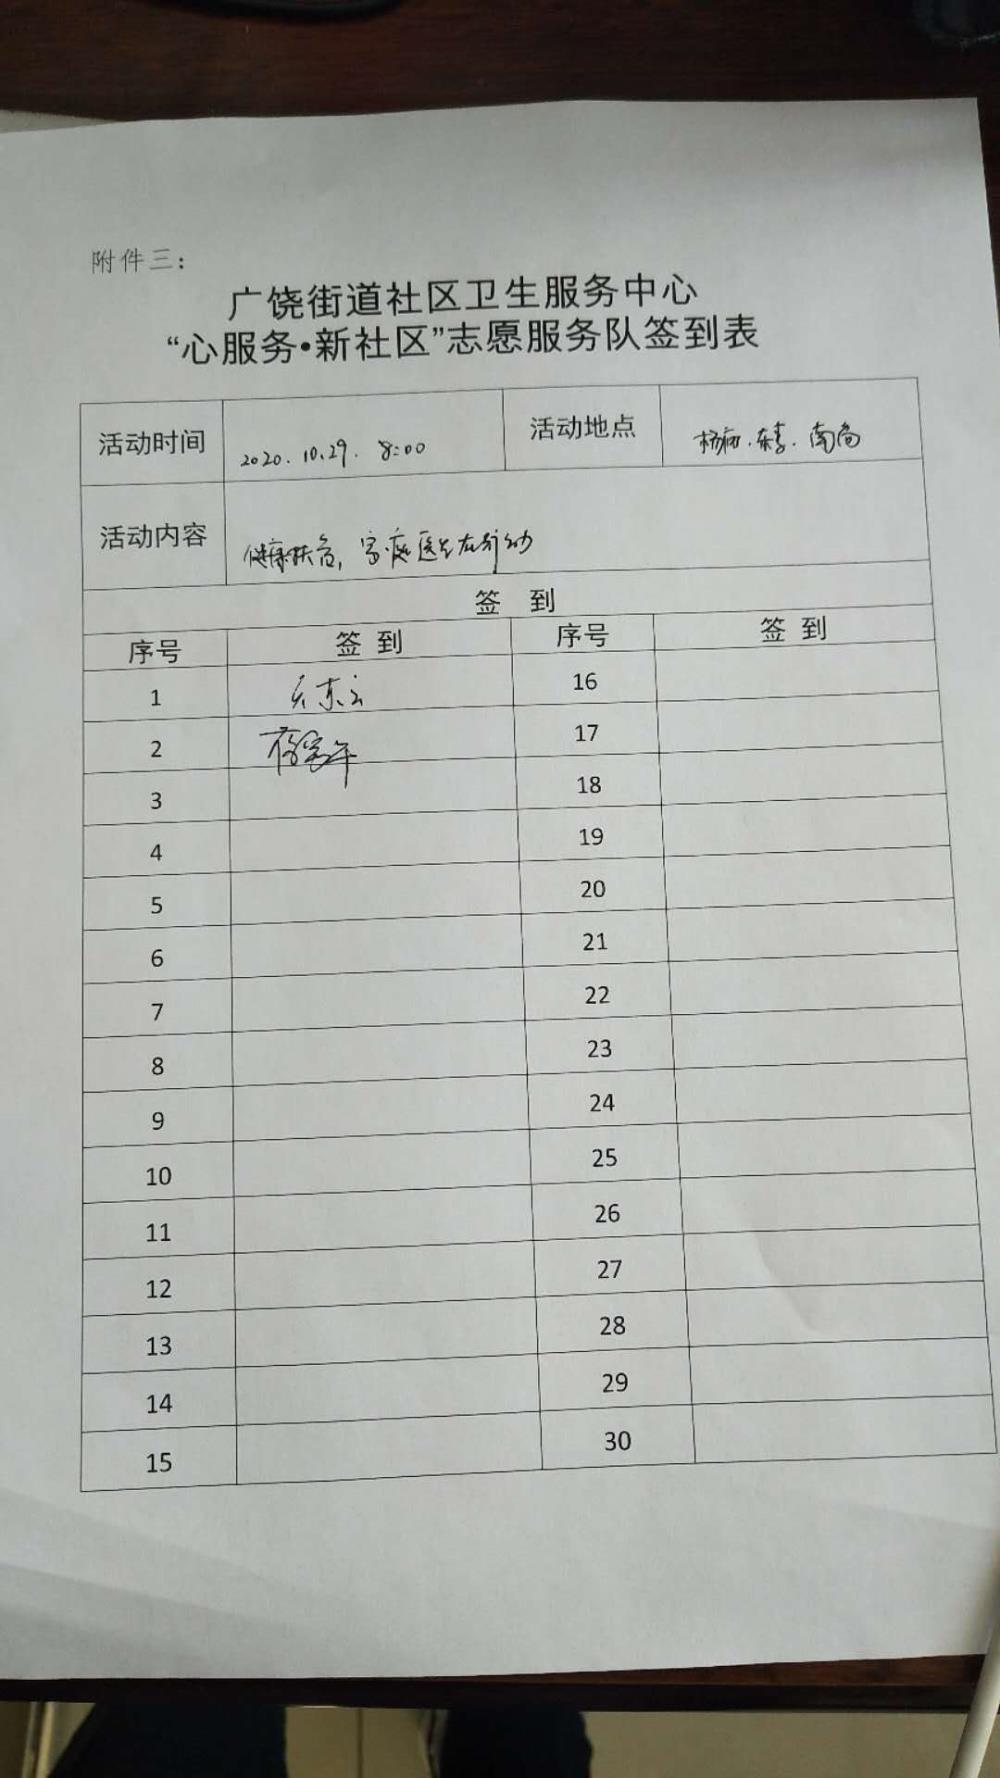 附件三：
广饶街道社区卫生服务中心
“心服务•新社区”志愿服务队签到表
活动时间 2020.10.29. 8:00 活动地点
活动内容 健康扶贫，家庭医生在行动
签 到
序号 签 到 序号 签 到
1 16
2 17
3 18
4 19
5 20
6 21
7 22
8 23
9 24
10 25
11 26
12 27
13 28
14 29
15 30